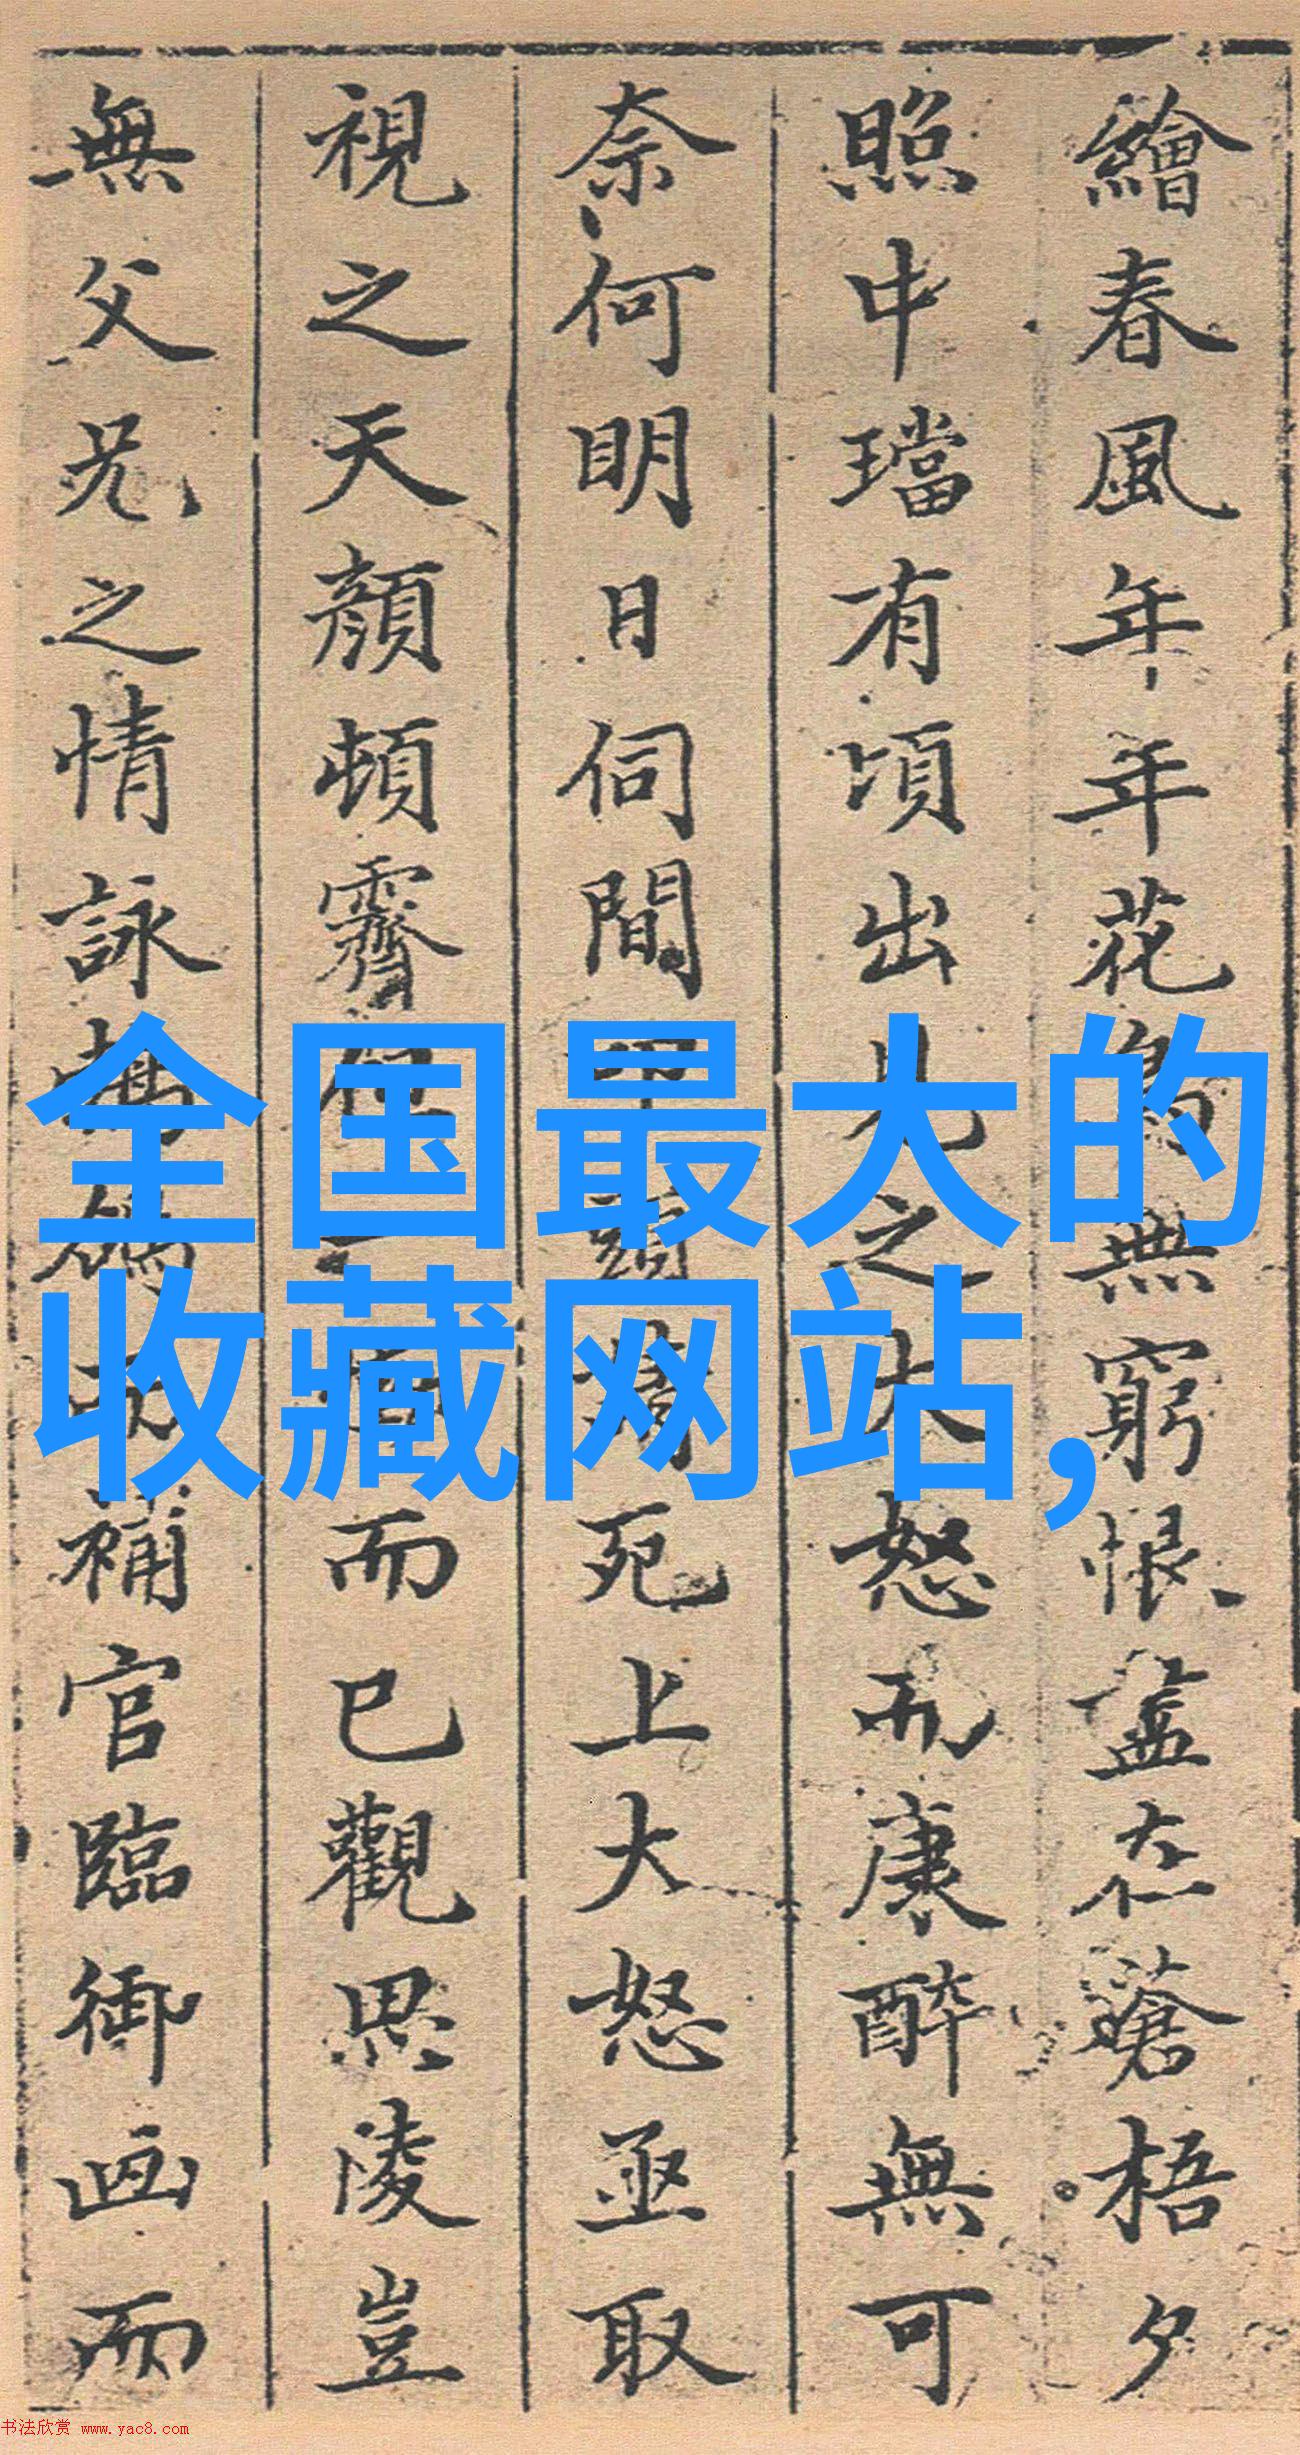 繪春風年年花鳥無窮恨盡在蒼梧夕
照中璫有頃出見之大怒而康醉無可
奈何明日伺間叩頭請死上大怒亟取
視之天顏頓霽但一慟而已觀思陵豈
無父兄之情詠鶺鴒而補官臨御画而
全国最大的
收藏网站,
书法欣赏 www.yac8.com